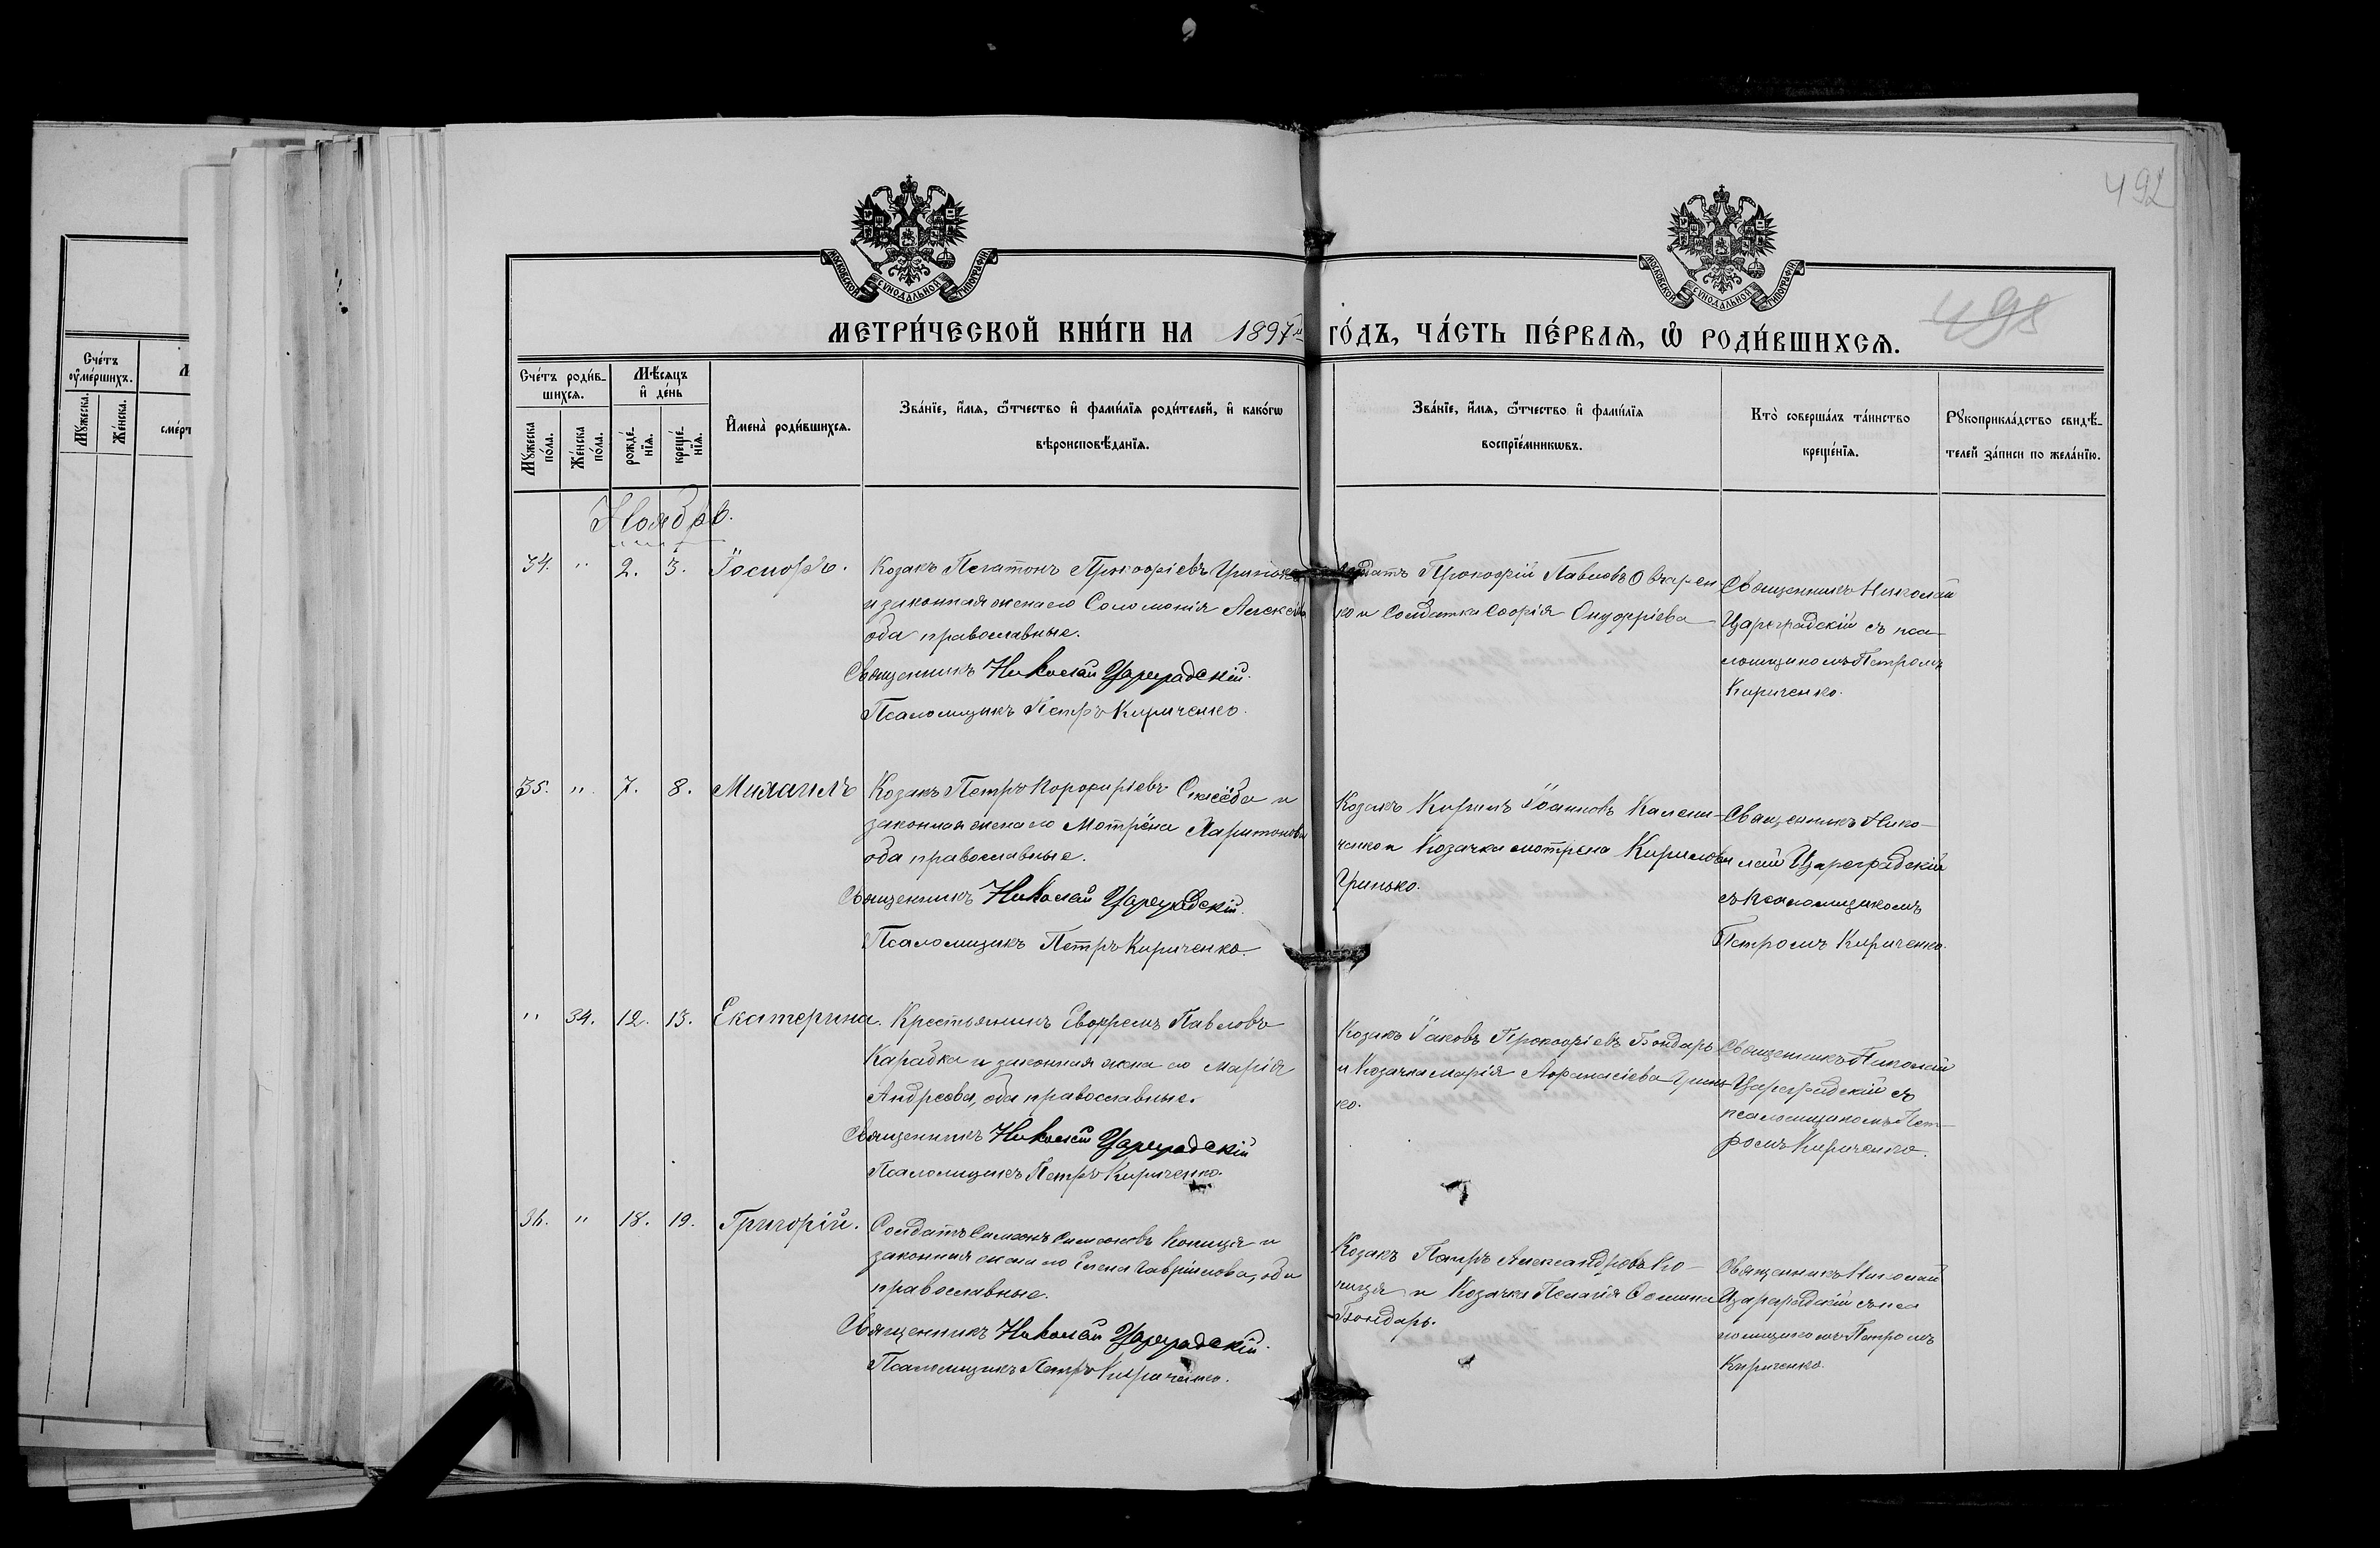 492
498
МОСКОВСКОЙ СУНОДАЛЬНОЙ ТИПОГРАФІИ
МОСКОВСКОЙ СУНОДАЛЬНОЙ ТИПОГРАФІИ
МЕТРИ́ЧЕСКОЙ КНИ́ГИ НА 1897й ГО́ДЪ, ЧА́СТЬ ПЕ́РВАѦ, Ѡ РОДИ́ВШИХСѦ.
Сче́тъ ᲂу҆ме́ршихъ.
Мꙋ́жеска.
Же́нска.
Сче́тъ роди́в-
шихсѧ.
Мꙋ́жеска по́ла.
Же́нска по́ла.
Мѣ́сѧцъ и҆ де́нь
рожде́-
нїѧ.
креще́-
нїѧ.
И҆мена̀ роди́вшихсѧ.
Зва́нїе, и҆́мѧ, ѻ҆́тчество и҆ фами́лїѧ роди́телей, и҆ како́гѡ
вѣроисповѣ́данїѧ.
Зва́нїе, и҆́мѧ, ѻ҆́тчество и҆ фами́лїѧ
воспрїе́мникѡвъ.
Кто̀ соверша́лъ та́инство
креще́нїѧ.
Рꙋкоприкла́дство свидѣ́-
телей за́писи по жела́нїю.
Ноябрь.
34. " 2. 3. Іосифъ.
Козакъ Платонъ Прокофіевъ Гринько
и законная жена его Соломонія Алексѣева
оба православные.
Священникъ Николай Цареградскій.
Псаломщикъ Петръ Кириченко.
Солдатъ Прокофій Павловъ Овчарен
ко и Солдатка Софія Онуфріева
Священникъ Николай
Цареградскій съ пса-
ломщикомъ Петромъ
Кириченко.
35. " 7. 8. Михаилъ
Козакъ Петръ Порфиріевъ и
законная жена его Мотрёна Харитонова
оба православные.
Священникъ Николай Цареградскій.
Псаломщикъ Петръ Кириченко.
Козакъ Кирилъ Іоанновъ Калени-
ченко и Козачка Мотрена Кирилова
Гринько.
Священникъ Нико-
лай Цареградскій
съ псаломщикомъ
Петромъ Кириченко.
" 34. 12. 13. Екатерина.
Крестьянинъ Евфремъ Павловъ
Карабка и законная жена его Марія
Андреева, оба православные.
Священникъ Николай Цареградскій
Псаломщикъ Петръ Кириченко.
Козакъ Іаковъ Прокофіевъ Бондарь
и Козачка Марія Афанасіева Гринь
ко.
Священникъ Николай
Цареградскій съ
псаломщикомъ Пет-
ромъ Кириченко.
36. " 18. 19. Григорій.
Солдатъ Симеонъ Симеоновъ Копиця и
законная жена его Елена Гавріилова, оба
православные.
Священникъ Николай Цареградскій.
Псаломщикъ Петръ Кириченко.
Козакъ Петръ Александровъ Ко-
пиця и Козачка Пелагія Осипина
Бондарь.
Священникъ Николай
Цареградскій съ пса
ломщикомъ Петромъ
Кириченко.